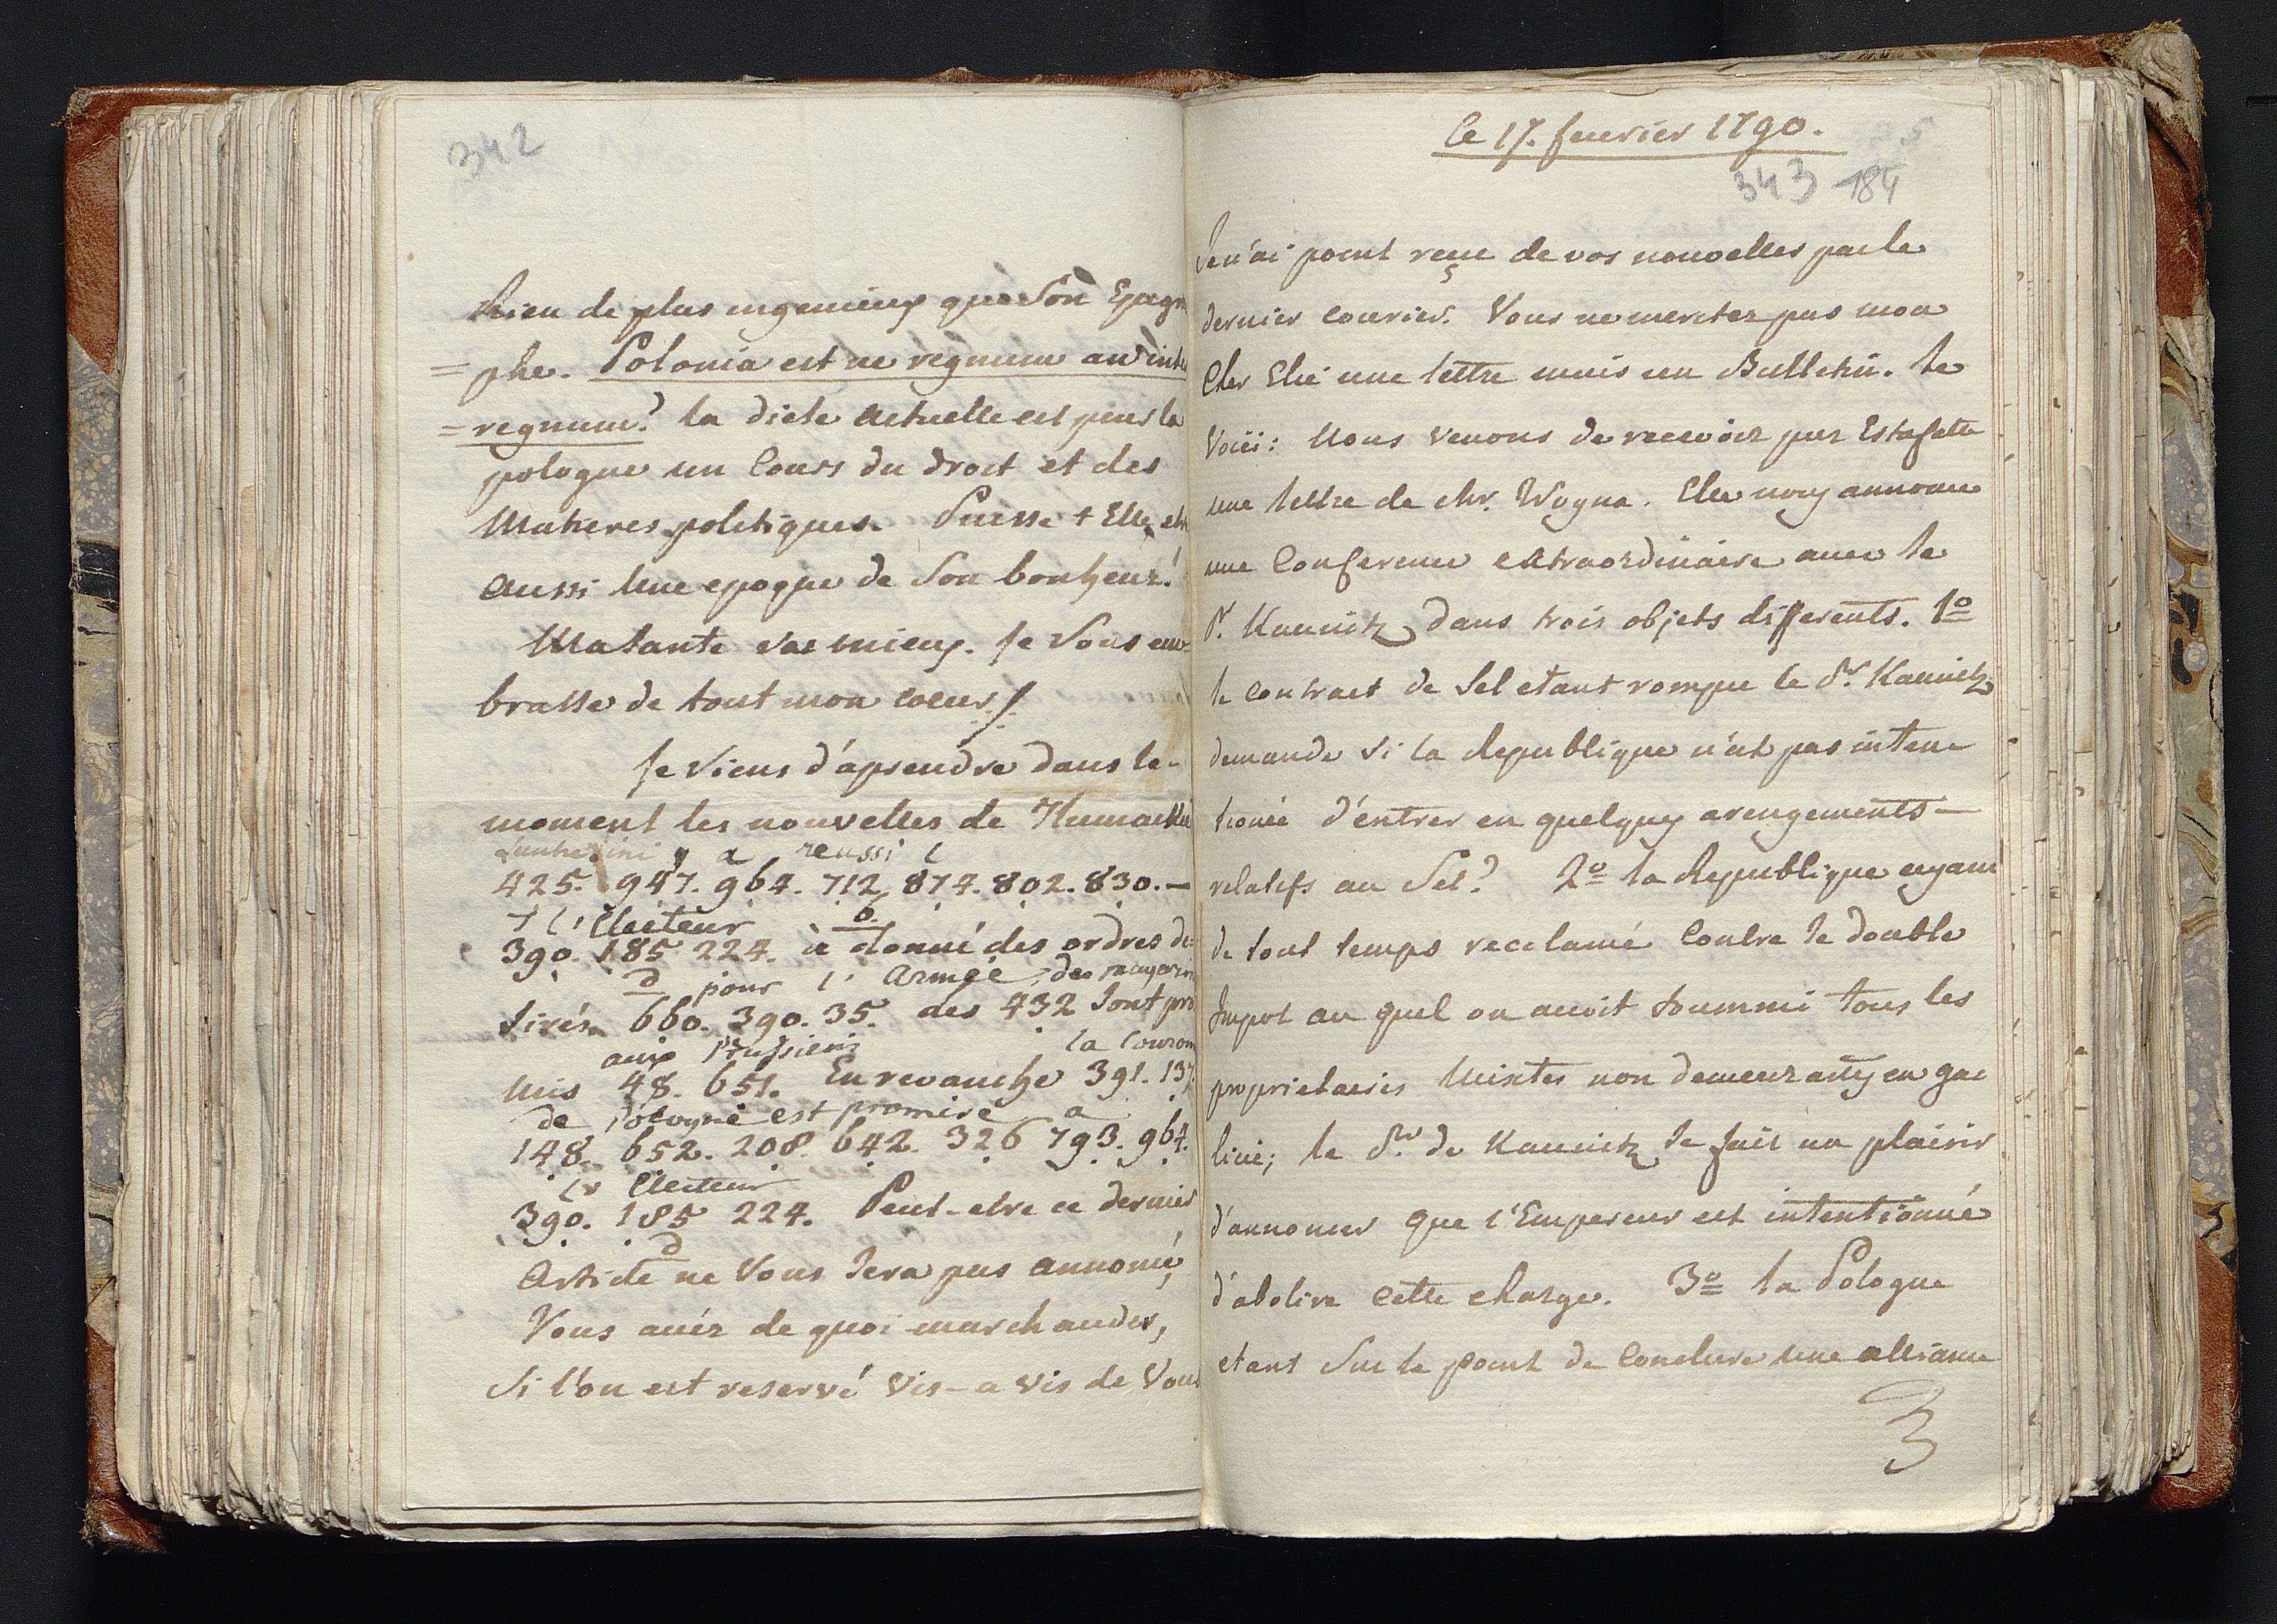 342
Rien de plus ingenieux que Son Epegra
= phe. Polonia est ne regnum an inte
= regnum? la diete actuelle est pour la
pologne un Cours du droit et des
Matieres politiques. Puisse + Elle etr
aussi Une epoque de Son bonheur!
Ma tante vas mieux. Je Vous em
brasse de tout mon coeur ./.
Je Viens d'aprendre dans le-
moment les nouvelles de
y a reussi
425. 947. 964. 712. 874. 802. 830.-
l'Electeur
390. 185 224. a donné des ordres de
pour l' Armée, des magazin
tirés. 660. 390. 35. des 432 Sont pro
aux Prussiens la Couron
mis 48. 651. En revanche 391. 137
de Pologne est promise a
148. 652. 208. 642. 326 793. 964.
Electeur
390. 185 224. Peut-etre ce dernier
Article ne Vous Sera pas annoncé,
Vous avéz de quoi marchander,
Si l'on est reservé Vis-a Vis de Vous
le 17. fevrier 1790.
343 184
Je n'ai point reçue de vos nouvelles par le
dernier courier. Vous ne meritez pas mon
Cher Elie une lettre mais un Bulletin. le
Voici: Nous venons de recevoir par Estafette
une lettre de chr. Woyna. Elle nous annonce
une Conference extraordinaire avec le
Pr. Kaunitz dans trois objets differents. 1o
le contract de Sel etant rompu le Pr. Kaunitz
demande Si la Republique n'est pas inten
tionée d'entrer en quelques arengements-
relatifs au Sel? 2o la Republique ayant
de tout temps reclamé Contre le double
Impot au quel on avoit soummi tous les
proprietaires Mixtes non demeurants en gal
licie; le Pr. de Kaunitz se fait un plaisir
d'annoncer que l'Empereur est intentionné
d'abolire cette charge. 3o la Pologne
etant Sur le point de Conclure une alliance
3